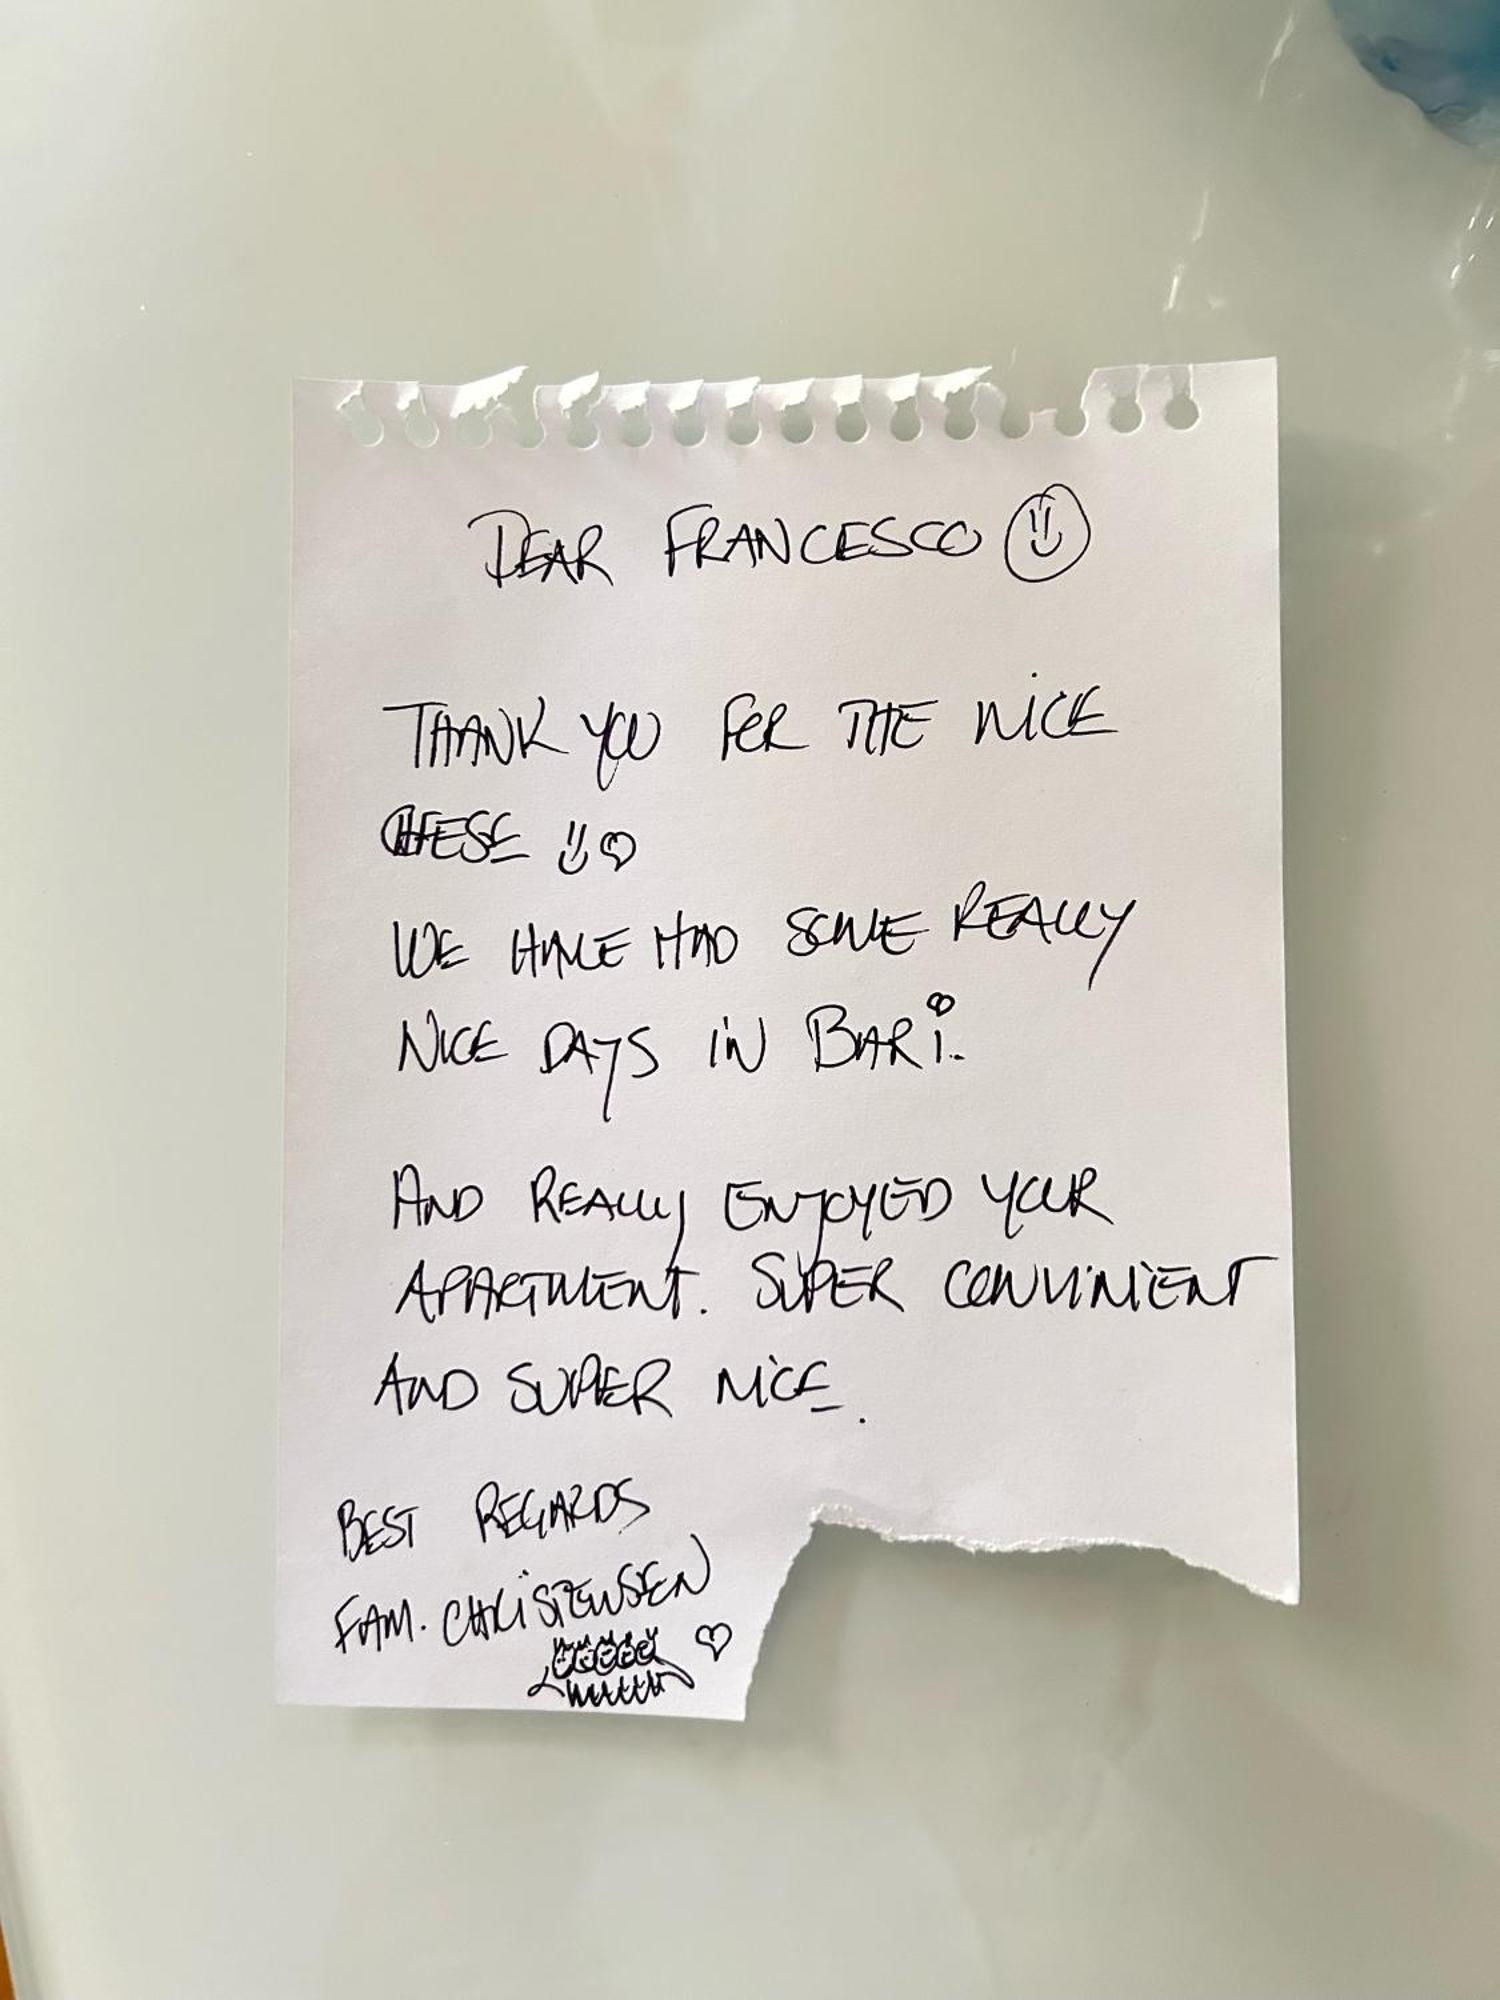 DEAR FRANCESCO
THANK YOU FOR THE NICE
CHEESE
WE HAVE HAD SOME REALLY
NICE DAYS IN BARI.
AND REALLY ENJOYED YOUR
APARTMENT. SUPER CONVINIENT
AND SUPER NICE.
BEST REGARDS
FAM. CHRISTENSEN